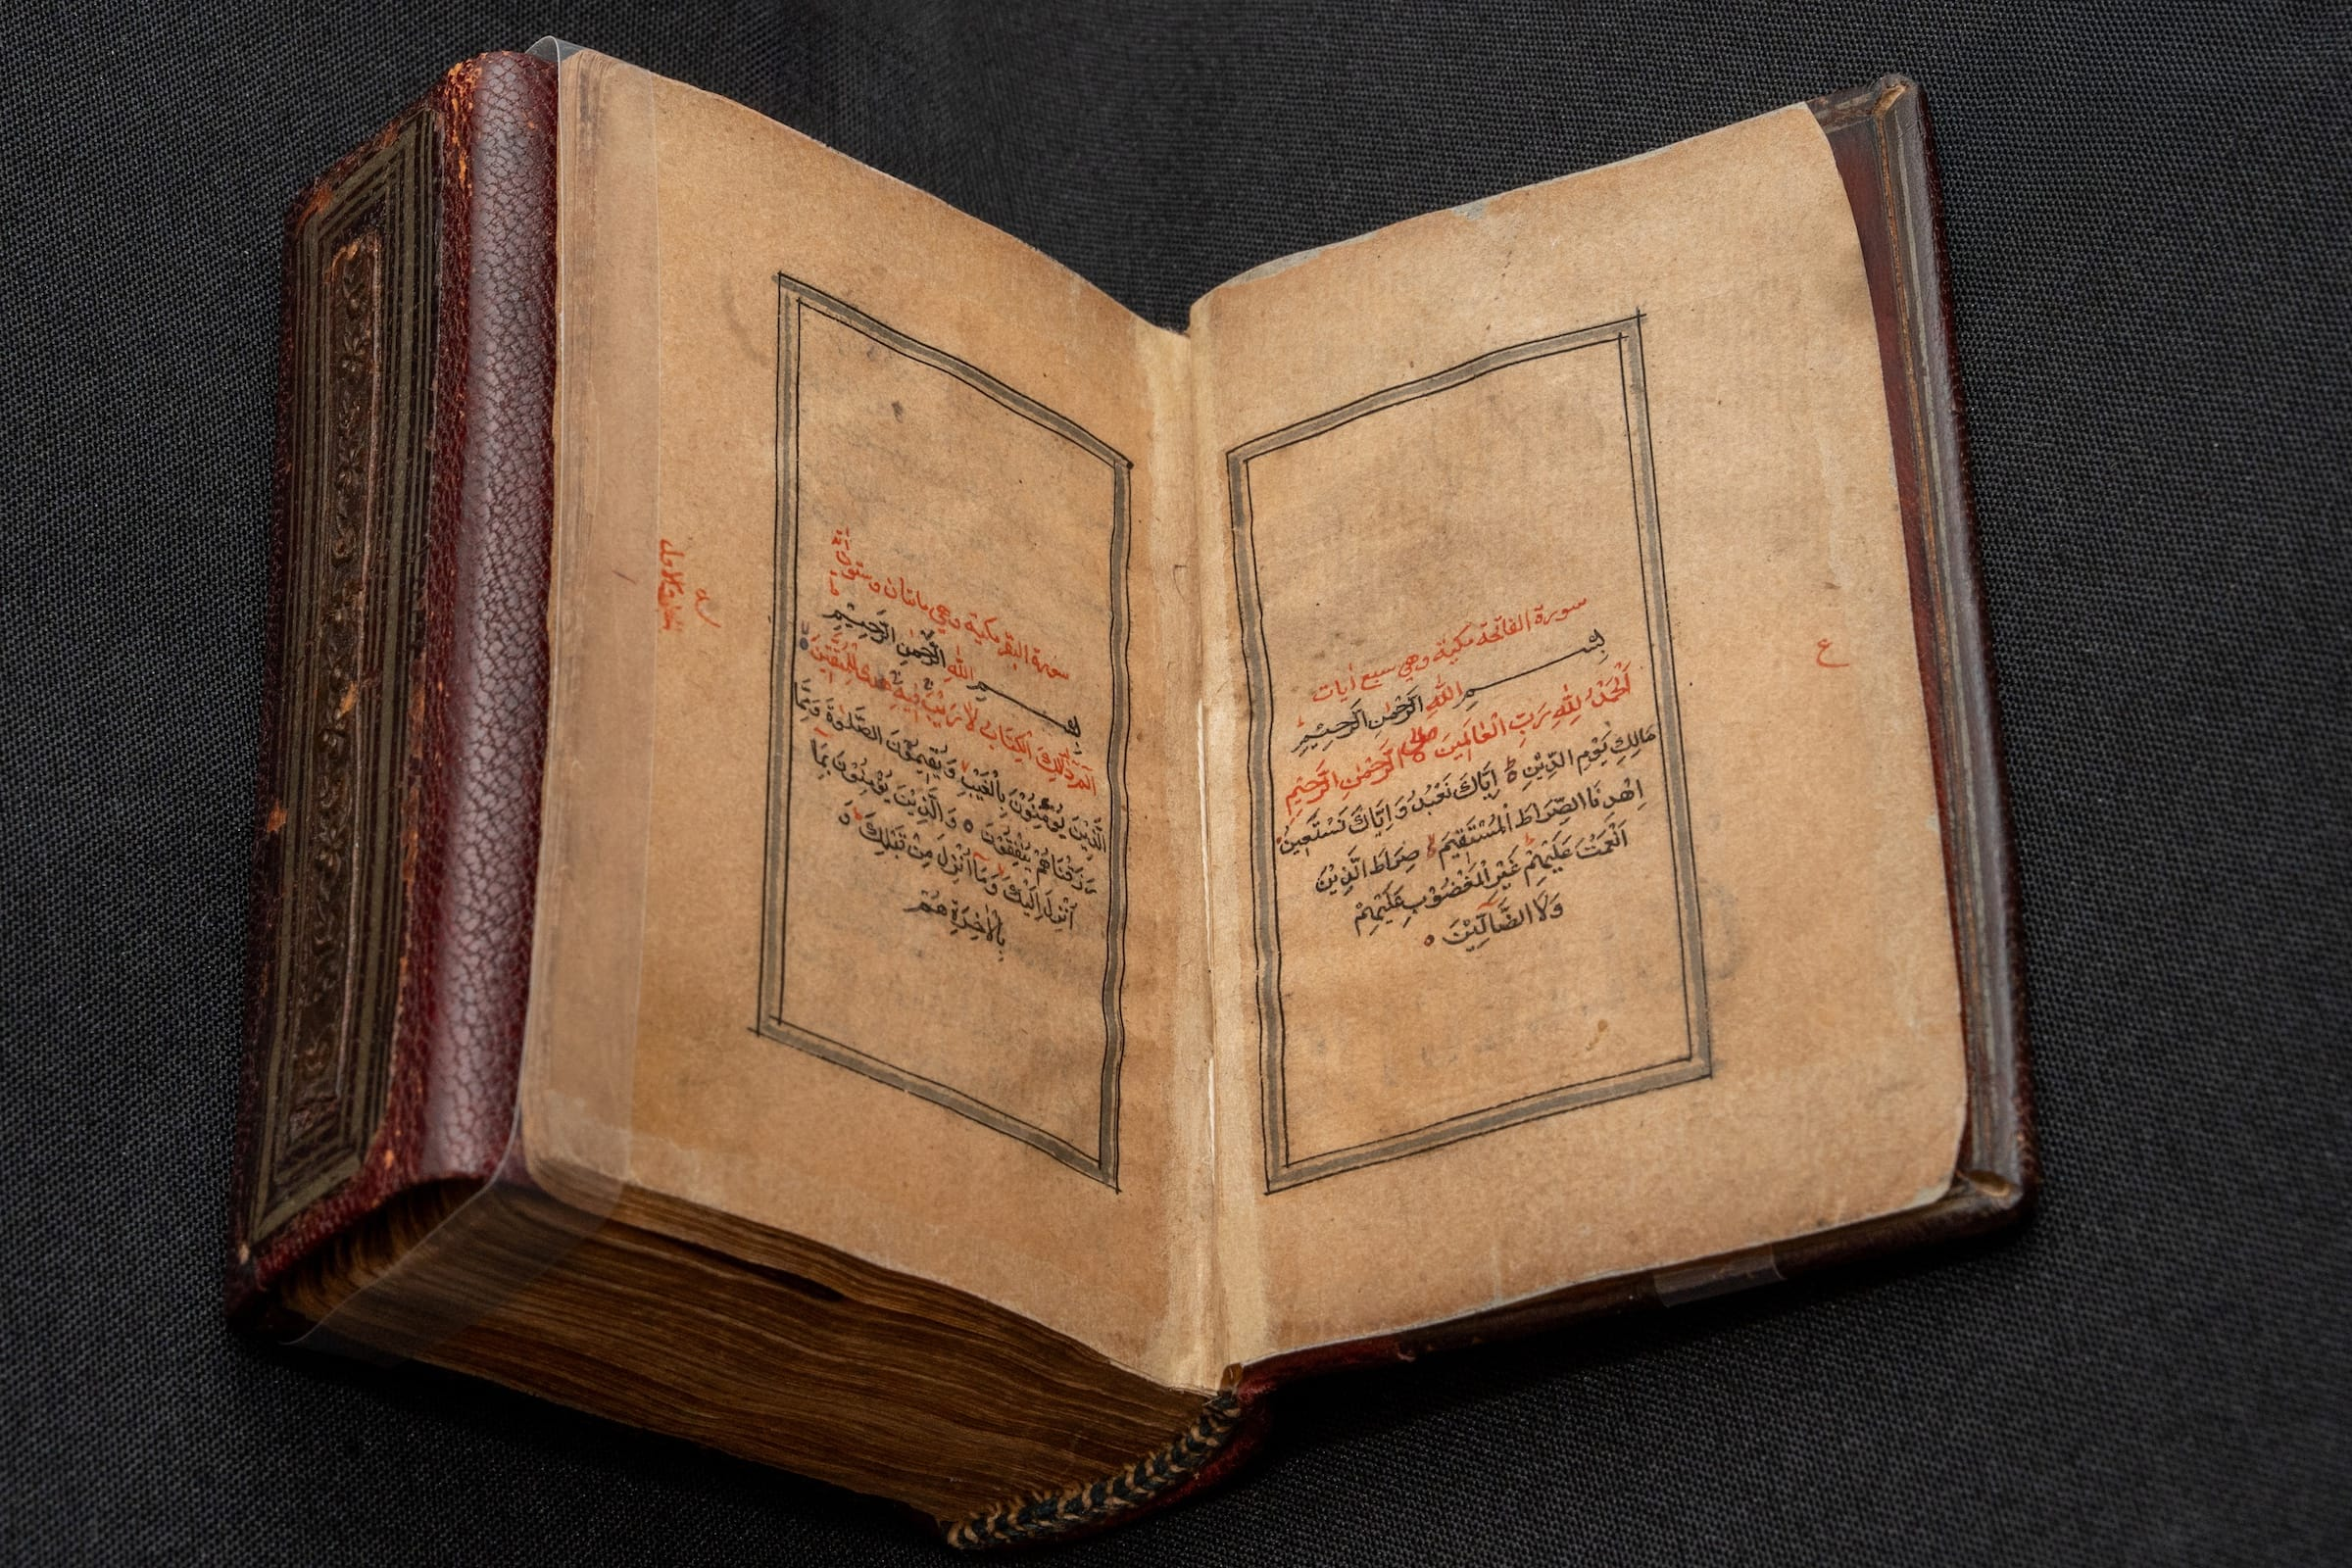 سورة الفاتحة مكية وهي سبع آيات
بســـــم الله الرَّحْمٰنِ الرَّحِيْمِ
اَلْحَمْدُ لِلّٰهِ رَبِّ الْعَالَمِيْنَ الرَّحْمٰنِ الرَّحِيْمِ
مَالِكِ يَوْمِ الدِّيْنِ ط اِيَّاكَ نَعْبُدُ وَاِيَّاكَ نَسْتَعِيْنُ
اِهْدِنَا الصِّرَاطَ الْمُسْتَقِيْمَ صِرَاطَ الَّذِيْنَ
اَنْعَمْتَ عَلَيْهِمْ غَيْرِ الْمَغْضُوْبِ عَلَيْهِمْ
وَلَا الضَّآلِّيْنَ ٥
ع
سورة البقر مكية وهي مائتان وستون
بســـــم الله الرَّحْمٰنِ الرَّحِيْمِ
الٓمّٓ ذٰلِكَ الْكِتَابُ لَا رَيْبَ فِيْهِ هُدًى لِلْمُتَّقِيْنَ
الَّذِيْنَ يُؤْمِنُوْنَ بِالْغَيْبِ وَيُقِيْمُوْنَ الصَّلٰوةَ وَمِمَّا
رَزَقْنَاهُمْ يُنْفِقُوْنَ ٥ وَالَّذِيْنَ يُؤْمِنُوْنَ بِمَآ
اُنْزِلَ اِلَيْكَ وَمَآ اُنْزِلَ مِنْ قَبْلِكَ وَ
بِالْاٰخِرَةِ هُمْ